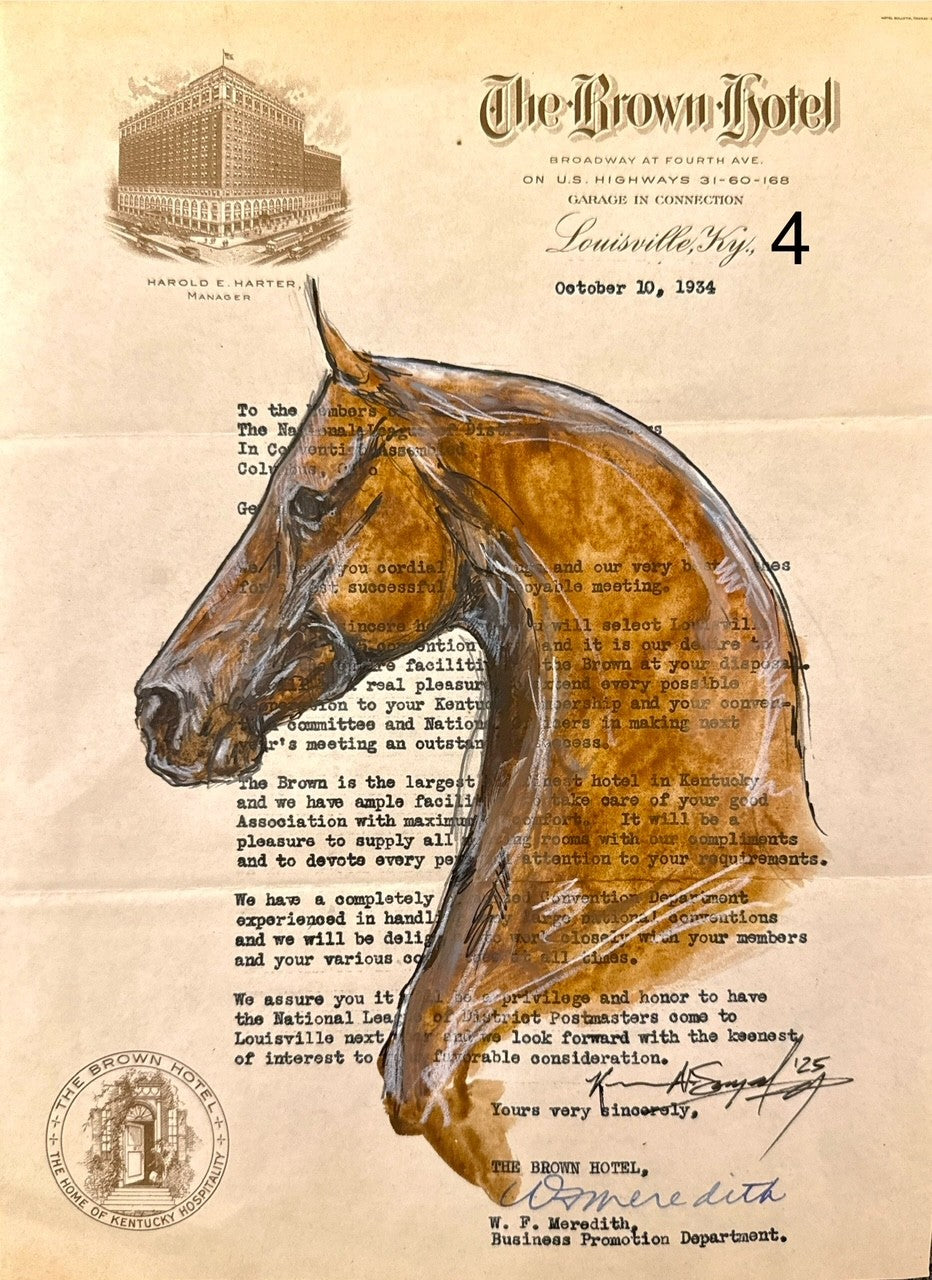 The Brown Hotel
BROADWAY AT FOURTH AVE.
ON U.S. HIGHWAYS 31-60-168
GARAGE IN CONNECTION
Louisville, Ky., 4
HAROLD E. HARTER,
MANAGER
October 10, 1934
To the Members
The National League of District
In Convention Assembled
Columbus, Ohio
you cordial and our very best
successful enjoyable meeting.
sincere you will select Louisville
convention and it is our desire to
facilities the Brown at your disposal.
real pleasure extend every possible
cooperation to your Kentucky membership and your conven-
committee and National officers in making next
year's meeting an outstanding success.
The Brown is the largest finest hotel in Kentucky
and we have ample facilities to take care of your good
Association with maximum comfort. It will be a
pleasure to supply all rooms with our compliments
and to devote every attention to your requirements.
We have a completely Convention Department
experienced in handling large national conventions
and we will be delighted to work closely with your members
and your various at all times.
We assure you it will be a privilege and honor to have
the National League of District Postmasters come to
Louisville next year and we look forward with the keenest
of interest to favorable consideration.
'25
Yours very sincerely,
THE BROWN HOTEL,
W F Meredith
W. F. Meredith,
Business Promotion Department.
THE BROWN HOTEL
THE HOME OF KENTUCKY HOSPITALITY